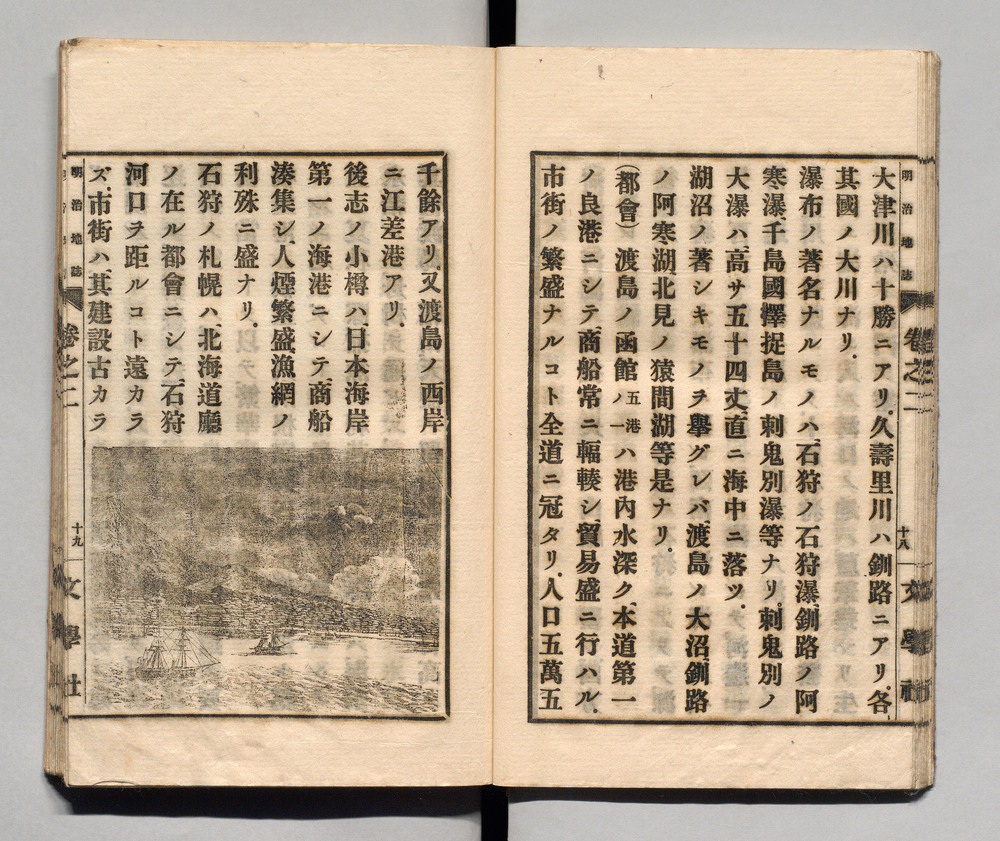 大津川ハ十勝ニアリ、久壽里川ハ釧路ニアリ、各
其國ノ大川ナリ。
瀑布ノ著名ナルモノハ、石狩ノ石狩瀑、釧路ノ阿
寒瀑、千島國擇捉島ノ刺鬼別瀑等ナリ。刺鬼別ノ
大瀑ハ、高サ五十四丈、直ニ海中ニ落ツ。
湖沼ノ著シキモノヲ擧グレバ、渡島ノ大沼、釧路
ノ阿寒湖、北見ノ猿間湖等是ナリ。
(都會)渡島ノ函館五港ノ一ハ港内水深ク、本道第一
ノ良港ニシテ、商船常ニ輻輳シ、貿易盛ニ行ハル。
市街ノ繁盛ナルコト全道ニ冠タリ。人口五萬五
明治地誌 卷之二 十八 文學社
千餘アリ。又渡島ノ西岸
ニ江差港アリ。
後志ノ小樽ハ、日本海岸
第一ノ海港ニシテ、商船
湊集シ、人煙繁盛漁網ノ
利殊ニ盛ナリ。
石狩ノ札幌ハ、北海道廳
ノ在ル都會ニシテ、石狩
河口ヲ距ルコト遠カラ
ズ、市街ハ、其建設古カラ
明治地誌 卷之二 十九 文學社